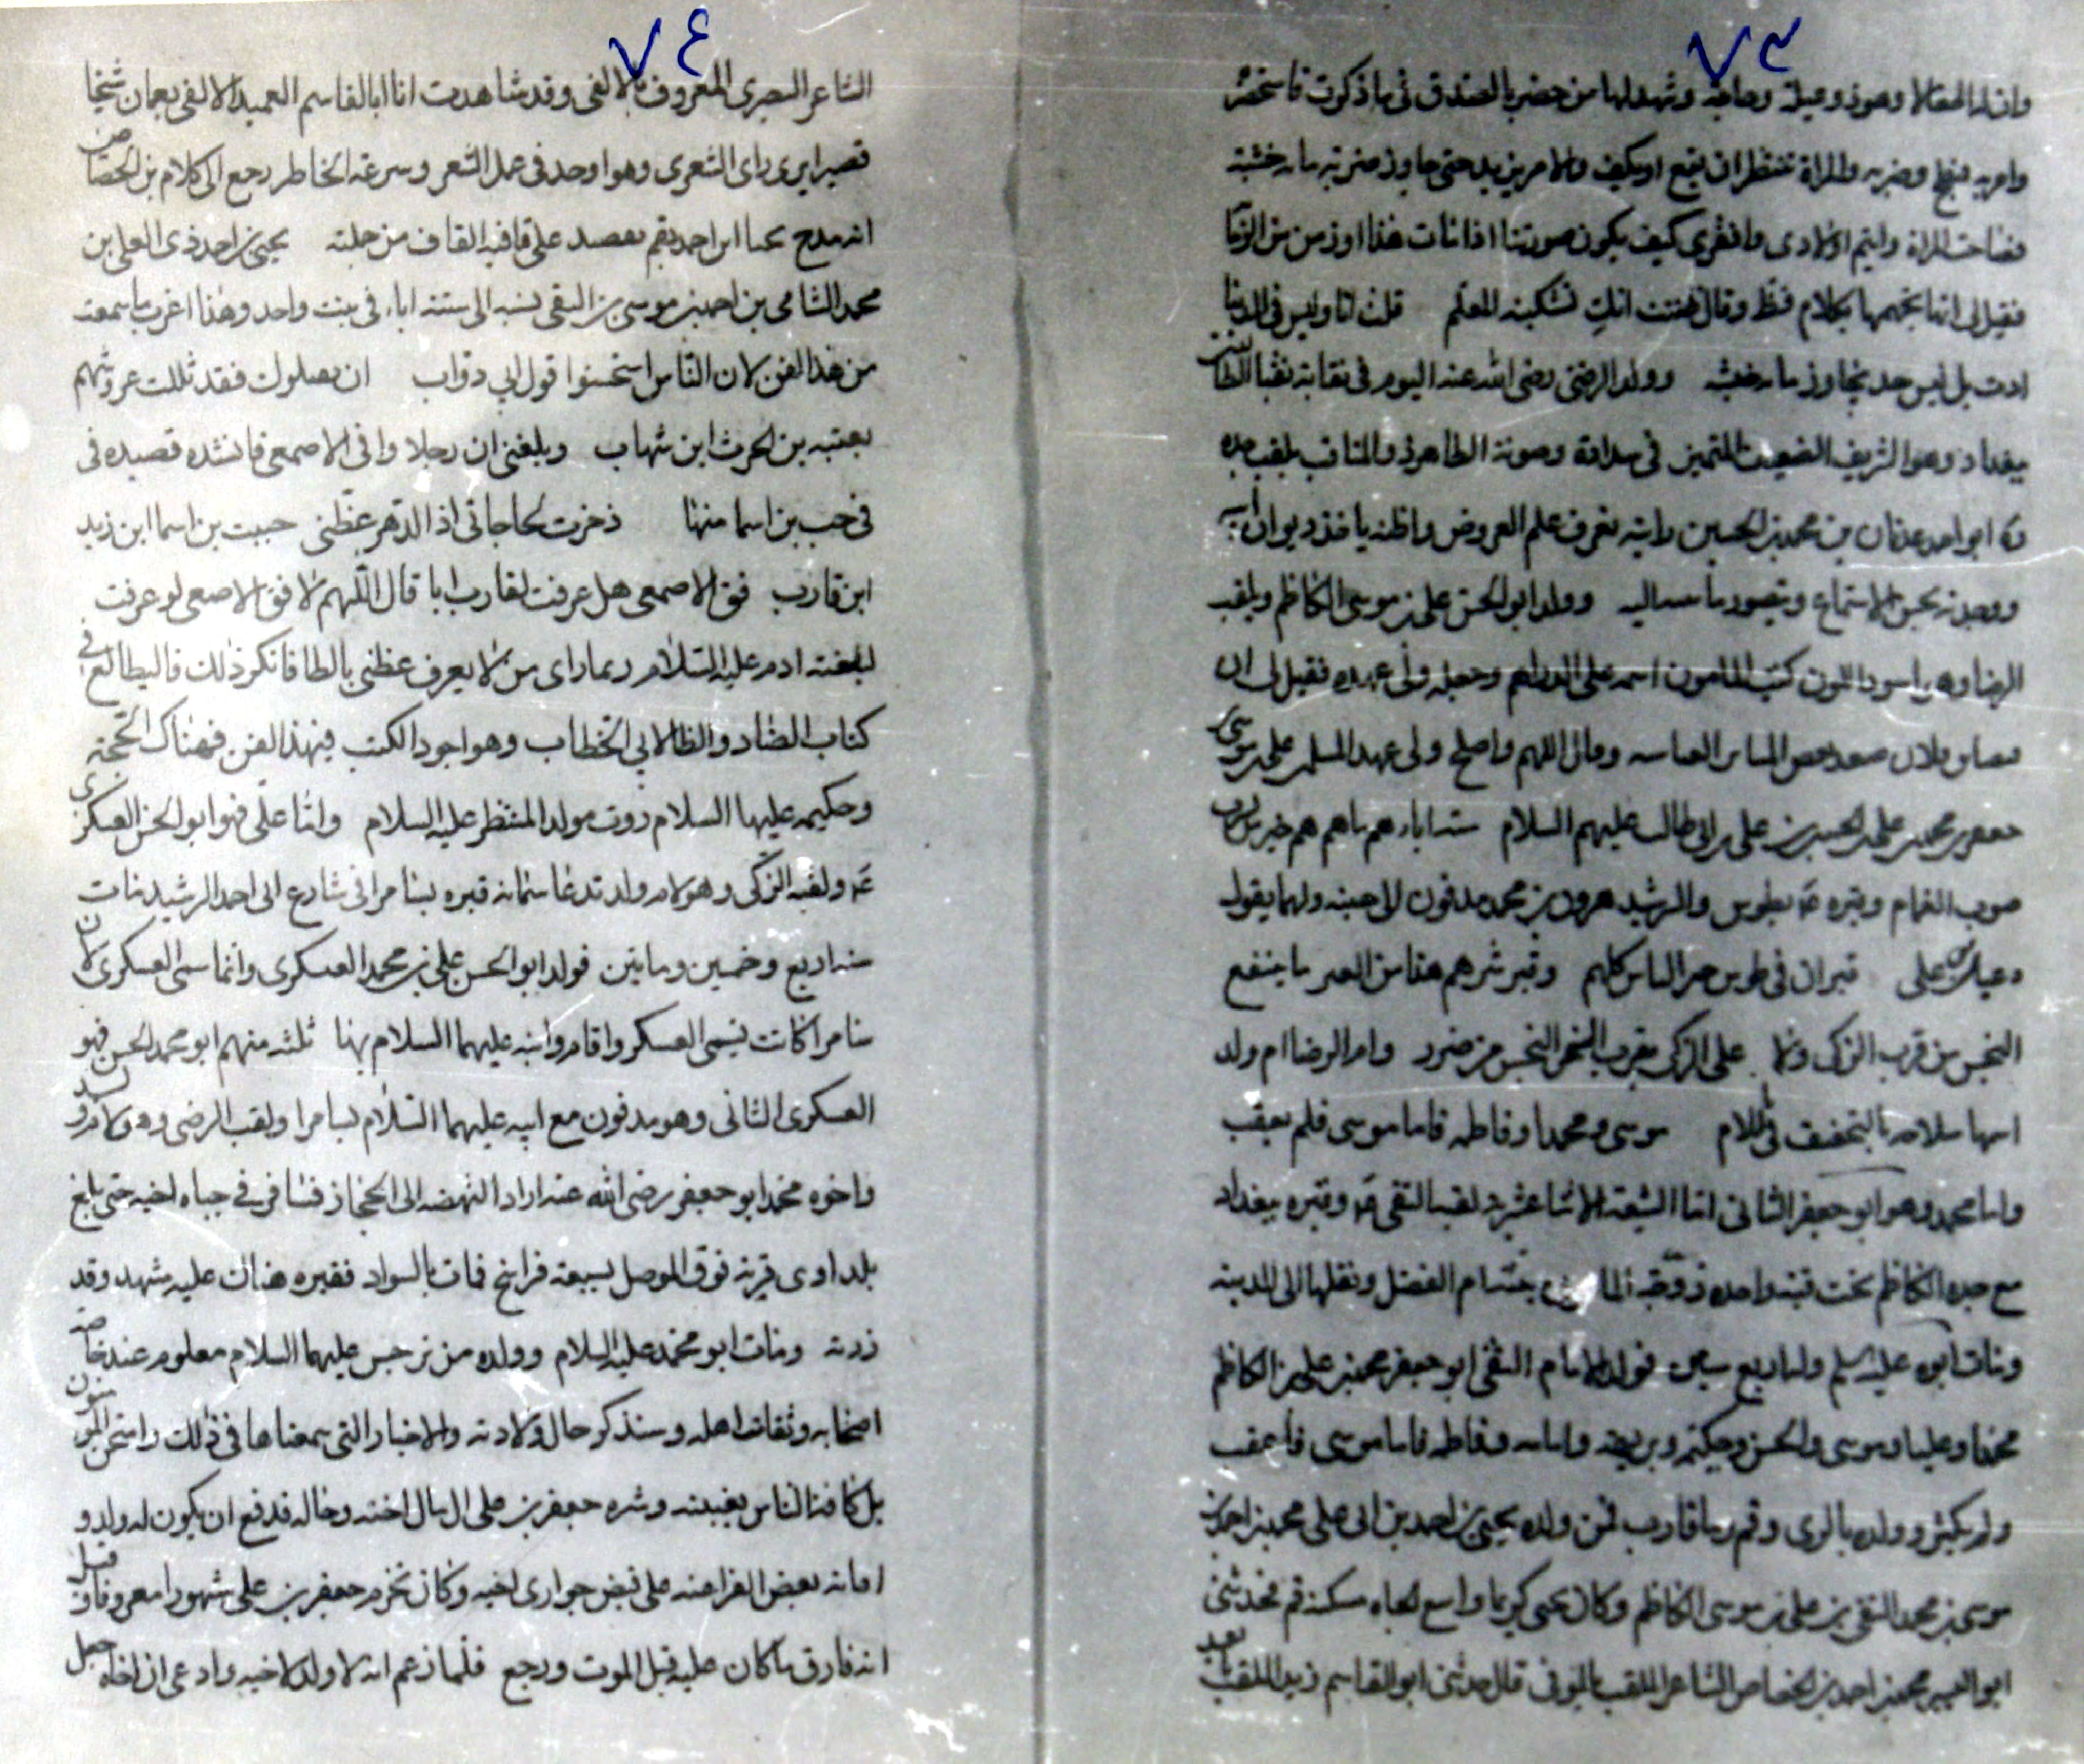 ٧٣
وان له المقالا وهو ذو وعيلة وحاجة وشهد لها من حضر بالصدق فى ما ذكرت فاستحضر
وامر به فبطح وضربه والمراة تنتظر ان يقع او يكف والامر يزيد حتى جاوز ضربه مايه خشبة
فصاحت المراة وايتم اولادى وافقرى كيف يكون صورتنا اذا مات هذا
فقيل لى انه تجهمها بكلام فظ وقال ظننت انك تشكينه للمعلم قلت انا وليس فى الدنيا
ادت بل ليس حد يتجاوز مايه خشبه وولد الرضى رضى الله عنه اليوم فى نقابة نقباء الطالبيين
ببغداد وهو الشريف العفيف المتميز فى سداده وصونه الطاهر ذو المناقب بلقب جده
ابو احمد عدنان بن محمد بن الحسين رايته يعرف علم العروض واظنه ياخذ ديوان ابيه
ووجدته يحسن الاستماع ويتصور ما ينبذ اليه وولد ابو الحسن على بن موسى الكاظم ويلقب
الرضا وهو اسود اللون كتب المامون اسمه على الدراهم وجعله ولى عهده فقيل لى ان
فلان صعد بعض المنابر العباسيه وقال اللهم واصلح ولى عهد المسلمين على بن موسى
جعفر بن محمد بن على بن الحسين بن على بن ابى طالب عليهم السلام سته اباءهم ما هم هم خير من يشرب
صوب الغمام وقبره بطوس والرشيد هرون بن محمد مدفون الى جنبه ولهما يقول
دعبل بن على قبران فى طوس خير الناس كلهم وقبر شرهم هذا من العبر ما ينفع
النجس من قرب الزكى ولا على الزكى بقرب النجس من ضرر وام الرضا ام ولد
اسمها سلامه بالتخفيف فى اللام موسى ومحمدا وفاطمه فاما موسى فلم يعقب
واما محمد وهو ابو جعفر الثانى امام الشيعة الاثنا عشرية لقبه التقى وقبره ببغداد
مع جده الكاظم تحت قبة واحده زوجه المامون بنته ام الفضل ونقلها الى المدينه
ومات ابوه عليه السلم وله اربع سنين فولد الامام التقى ابو جعفر محمد بن على بن الكاظم
محمدا وعليا وموسى والحسن وحكيمه وبريهه وامامه وفاطمه فاما موسى فاعقب
ولم يكثر وولده بالرى وقم وما قارب فمن ولده يحيى بن احمد بن ابى على محمد بن احمد بن
موسى بن محمد التقى بن على بن موسى الكاظم وكان يحيى كريما واسع الجاه سكنه قم فحدثنى
محمد بن احمد بن الخصاص الشاعر الملقب بالموفى قال حدثنى ابو القاسم زيد الملقب بعد
٧٤
الشاعر البصرى المعروف بالالفى وقد شاهدت انا ابا القاسم العميد الالفى بعمان شيخا
قصيرا يرى راى الشعرى وهو اوحد فى عمل الشعر وسرعة الخاطر رجع الى كلام بن الخصاص
انه مدح يحيا ابن احمد بقم بقصيد على قافيه القاف من جملته يحيى بن احمد ذى العلى بن
محمد الشامى بن احمد بن موسى بن التقى نسبه الى سته اباء فى بيت واحد وهذا اغرب ما سمعت
من هذا الفن لان الناس استحسنوا قول ابى دواب ان يقتلوك فقد ثللت عروشهم
بعتيبه بن الحرث ابن شهاب وبلغنى ان رجلا وافى الاصمعى فانشده قصيده فى
فى حب بن اسما منها ذخرت لحاجاتى اذ الدهر عظنى حبيب بن اسما ابن زيد
ابن قارب فق الاصمعى هل عرفت لقارب ابا قال اللهم لا فق الاصمعى لو عرفت
لبلغته ادم عليه السلام ربما راى من لا يعرف عظنى بالظا فانكر ذلك فاليطالع فى
كتاب الضاد والظا لابى الخطاب وهو اجود الكتب فيهذا الفن فهناك الحجة
وحكيمه عليها السلام روت مولد المنتظر عليه السلام واما على فهو ابو الحسن العسكرى
ولقبه الزكى وهو لام ولد تدعا سمانه قبره بسامرا فى شارع ابى احمد الرشيد مات
سنه اربع وخمسين ومايتين فولد ابو الحسن على بن محمد العسكرى وانما سمى العسكرى لان
سامرا كانت تسمى العسكر واقام وابنه عليهما السلام بها ثلثه منهم ابو محمد الحسن فهو
العسكرى الثانى وهو مدفون مع ابيه عليهما السلام بسامرا ولقب الرضى وهو لام ولد
واخوه محمد ابو جعفر رضى الله عنه اراد النهضه الى الحجاز فسافر فى حياه اخيه حتى بلغ
بلد اوى قرية فوق الموصل بسبعة فراسخ فمات بالسواد فقبره هناك عليه مشهد وقد
زرته ومات ابو محمد عليه السلام وولده من نرجس عليهما السلام معلوم عند خاصة
اصحابه وثقات اهله وسنذكر حال ولادته والاخبار التى سمعناها فى ذلك وامتحن المومنون
بل كافة الناس بغيبته وشره جعفر بن على الى مال اخيه وحاله فدفع ان يكون له ولد و
اعانه بعض الفراعنه على قبض جوارى اخيه وكان تخرم جعفر بن على مشهورا معروفا وقيل
انه فارق ما كان عليه قبل الموت ورجع فلما زعم انه لا ولد لاخيه وادعى ان اخاه جعل